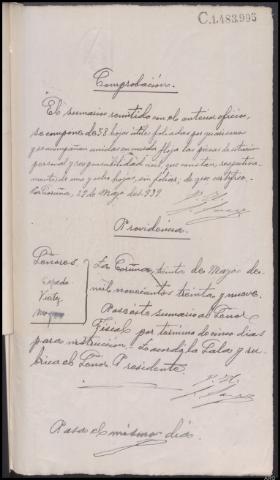 C.1.483.995
Comprobación.
El sumario remitido en el anterior oficio,
se compone de 38 hojas útiles foliadas que
y acompañan unidas en cuerda floja las piezas de situación
personal y responsabilidad civil que constan, respectiva-
mente: de una y ocho hojas, sin foliar; de que certifico.
La Coruña, 29 de Mayo de 1939
P.H.
Providencia.
Señores
Vieitez
La Coruña, treinta de Mayo de
mil novecientos treinta y nueve.
Pase este sumario al Señor
Fiscal por término de cinco días
para instrucción. Lo acordó la Sala y ru-
brica el Señor Presidente.
P.H.
Pasa el mismo día.